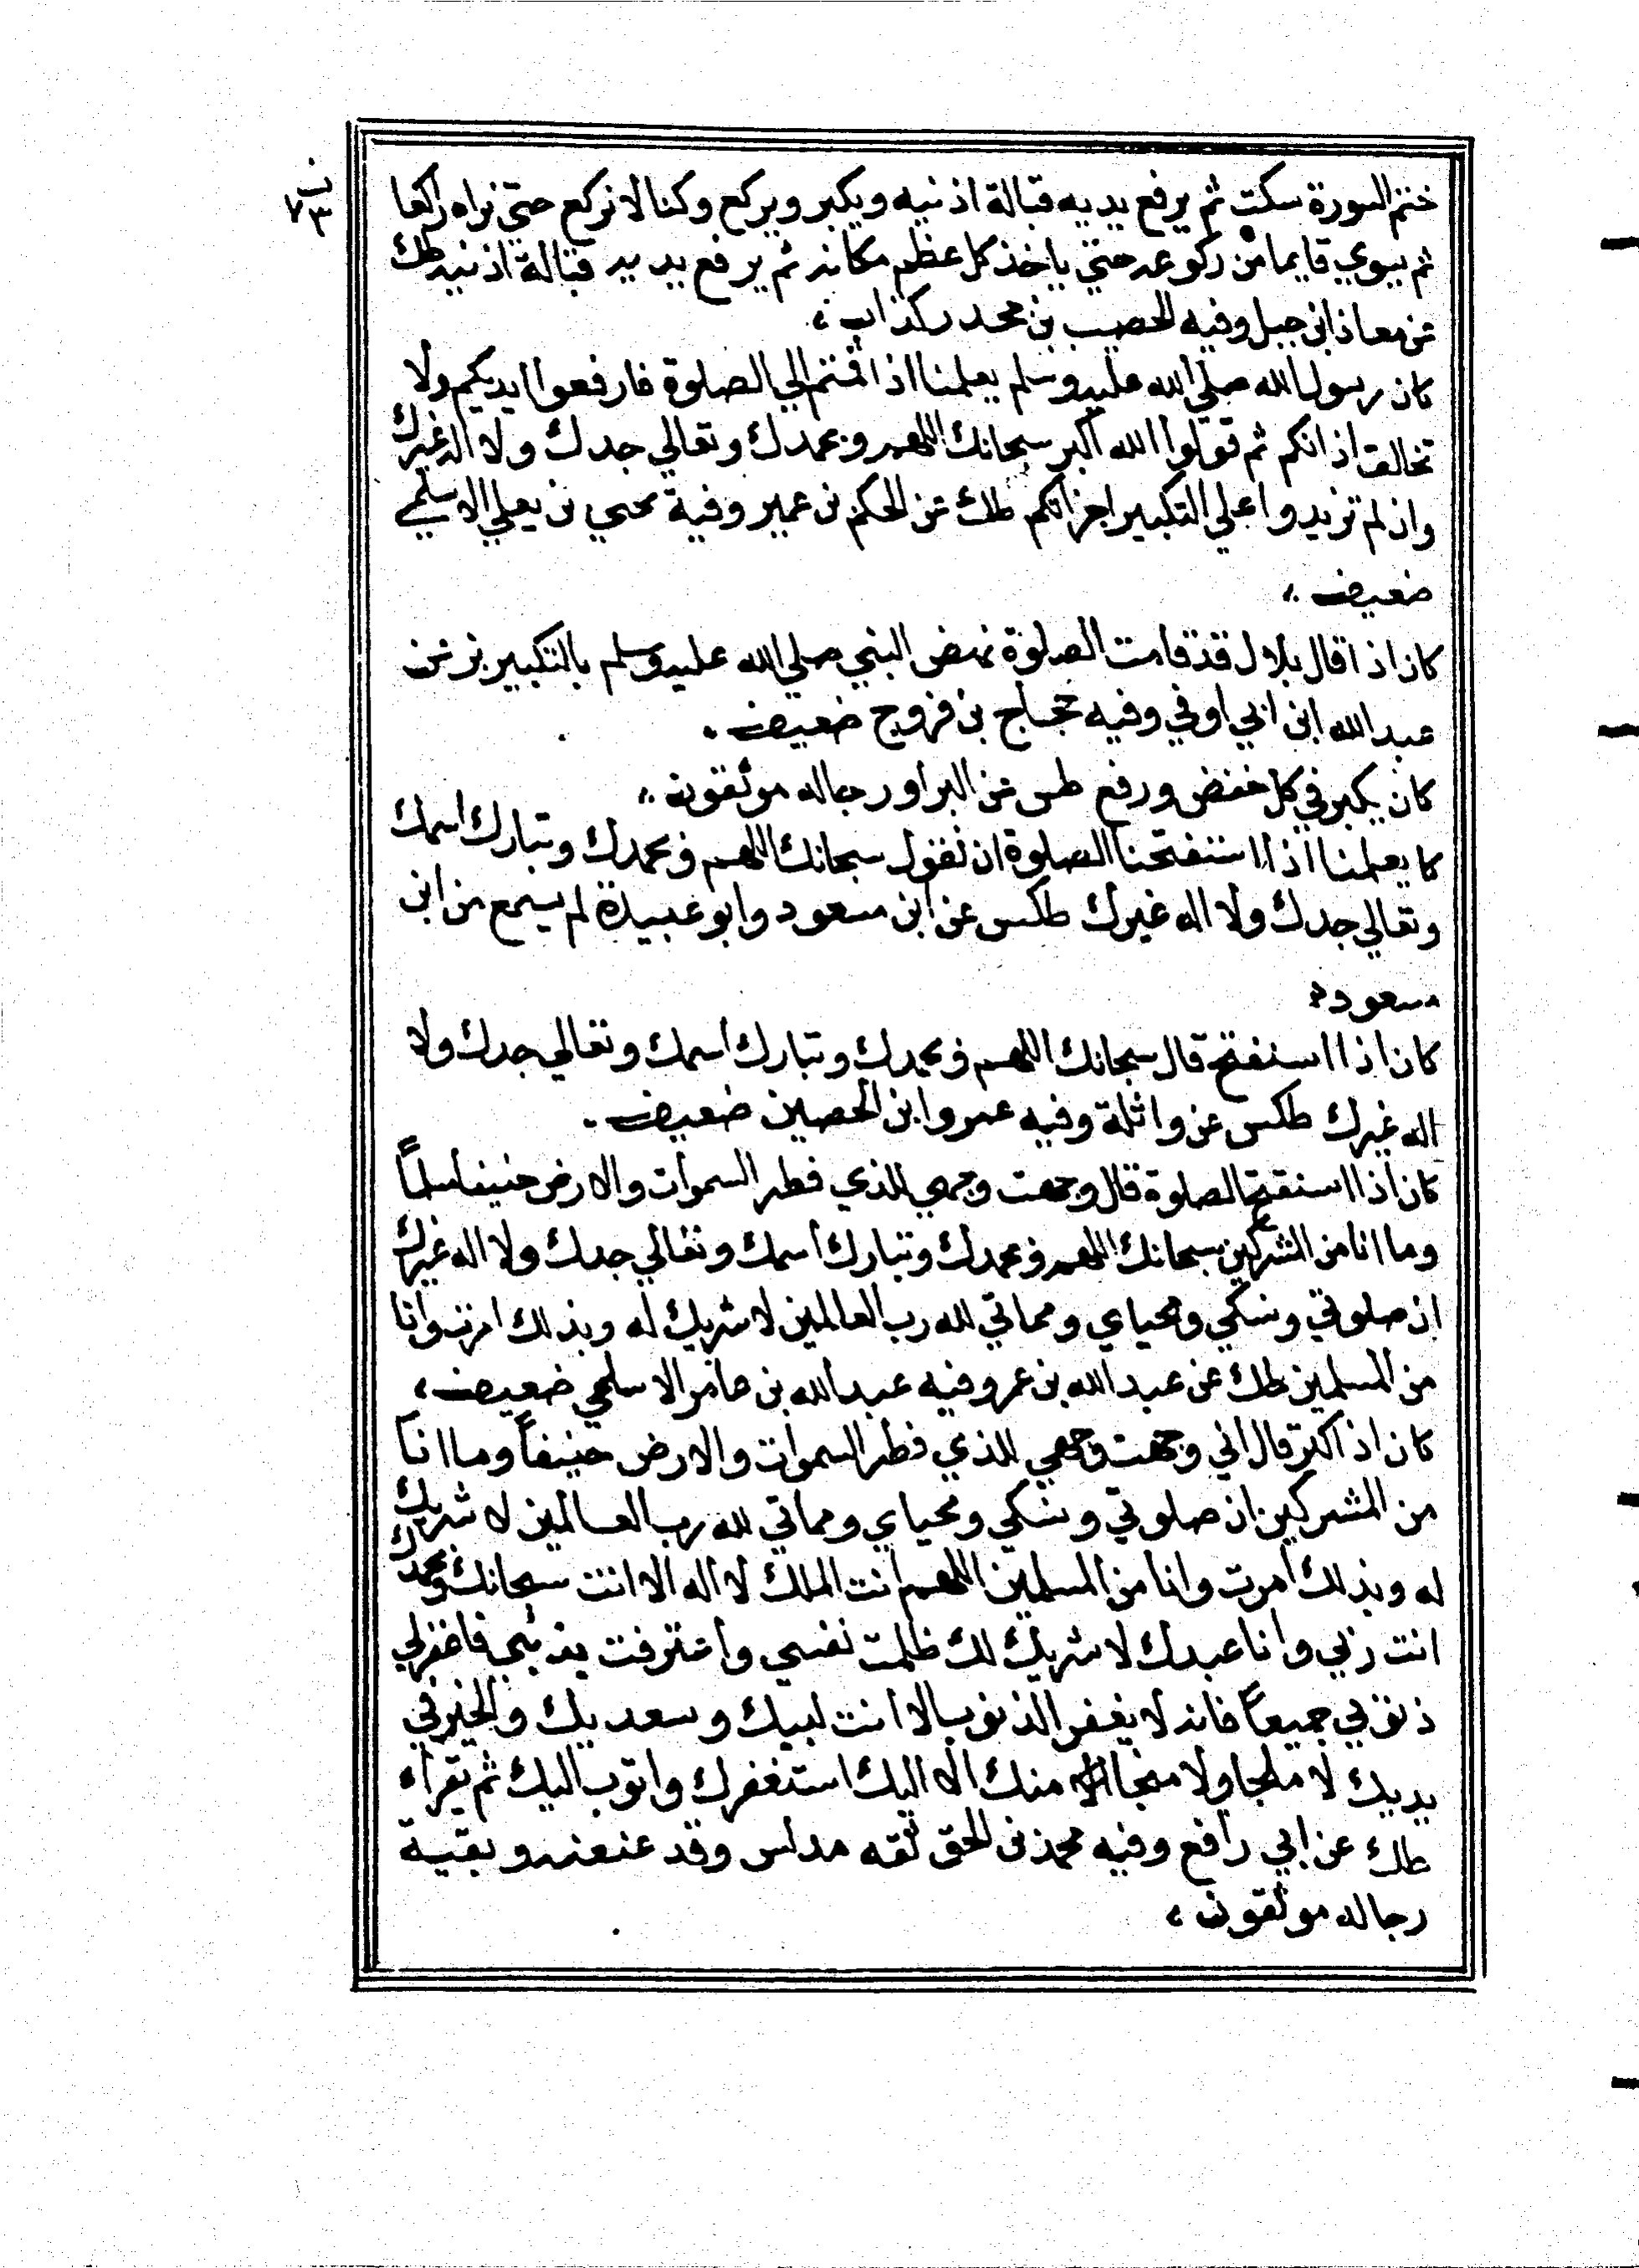 ختم السورة سكت ثم يرفع يديه قبالة اذنيه ويكبر ويركع وكنا لا نركع حتي نراه راكعا
ثم يسوي قايما من ركوعه حتي ياخذ كل عظم مكانه ثم يرفع يديه قبالة اذنيه طك
عن معاذ ابن جبل وفيه الحصيب بن محدر كذاب
كان رسول الله صلي الله عليه وسلم يعلمنا اذا قمتم الي الصلوة فارفعوا ايديكم ولا
تخالف اذانكم ثم قولوا الله اكبر سبحانك اللهم وبحمدك وتعالي جدك ولا اله غيرك
وان لم تزيدوا علي التكبير اجزاتكم طك عن الحكم بن عمير وفية يحيي بن يعلي الاسلمي
ضعيف
كان اذا قال بلال قد قامت الصلوة نهض النبي صلي الله عليه وسلم بالتكبير بز عن
عبد الله ابن ابي اوفي وفيه حجاج بن فروج ضعيف
كان يكبر في كل خفض ورفع طس عن البرا ورجاله موثقون
كا يعلمنا اذا استفتحنا الصلوة ان نقول سبحانك اللهم وبحمدك وتبارك اسمك
وتعالي جدك ولا اله غيرك طكس عن ابن مسعود وابو عبيدة لم يسمع من ابن
مسعود
كان اذا استفتح قال سبحانك اللهم وبحمدك وتبارك اسمك وتعالي جدك ولا
اله غيرك طكس عن واثلة وفيه عمرو ابن الحصين ضعيف
كان اذا استفتح الصلوة قال وجهت وجهي للذي فطر السموات والارض حنيفا مسلماً
وما انا من المشركين سبحانك اللهم وبحمدك وتبارك اسمك وتعالي جدك ولا اله غيرك
ان صلوتي ونسكي ومحياي ومماتي لله رب العالمين لا شريك له وبذلك امرت وانا
من المسلمين طك عن عبد الله بن عمر وفيه عبد الله بن عامر الاسلمي ضعيف
كان اذا كبر قال اني وجهت وجهي للذي فطر السموات والارض حنيفاً وما انا
من المشركين ان صلوتي ونسكي ومحياي ومماتي لله رب العالمين لا شريك
له وبذلك امرت وانا من المسلمين اللهم انت الملك لا اله الا انت سبحانك وبحمدك
انت ربي وانا عبدك لا شريك لك ظلمت نفسي واعترفت بذنبي فاغفر لي
ذنوبي جميعاً فانه لا يغفر الذنوب الا انت لبيك وسعديك والخير في
يديك لا ملجا ولا منجا منك الا اليك استغفرك واتوب اليك ثم يقراء
طك عن ابي رافع وفيه محمد بن الحق ثقه مدلس وقد عنعنه وبقية
رجاله موثقون